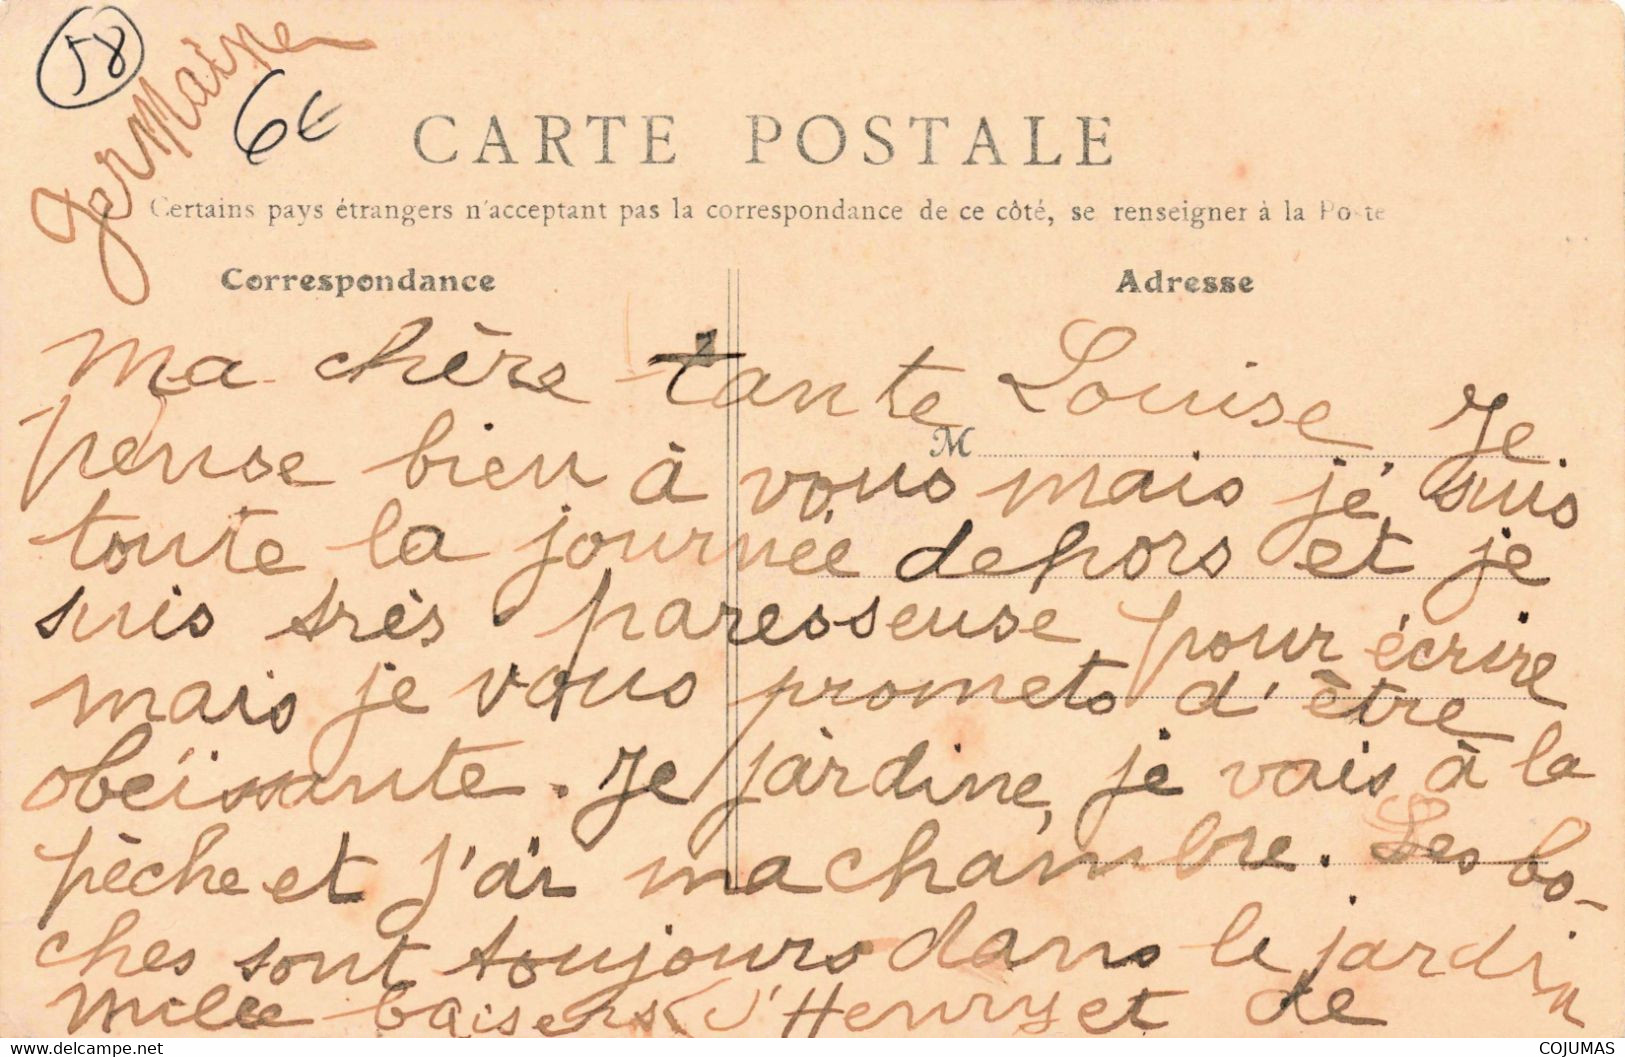 58
Germaine
6€
CARTE POSTALE
Certains pays étrangers n'acceptant pas la correspondance de ce côté, se renseigner à la Poste
Correspondance
Adresse
M
Ma chère tante Louise Je
pense bien à vous mais je suis
toute la journée dehors et je
suis très paresseuse pour écrire
mais je vous promets d'être
obéissante. Je jardine, je vais à la
pêche et j'ai ma chambre. Les bo-
ches sont toujours dans le jardin
mille baisers d'Henry et de
https://www.delcampe.net
COJUMAS